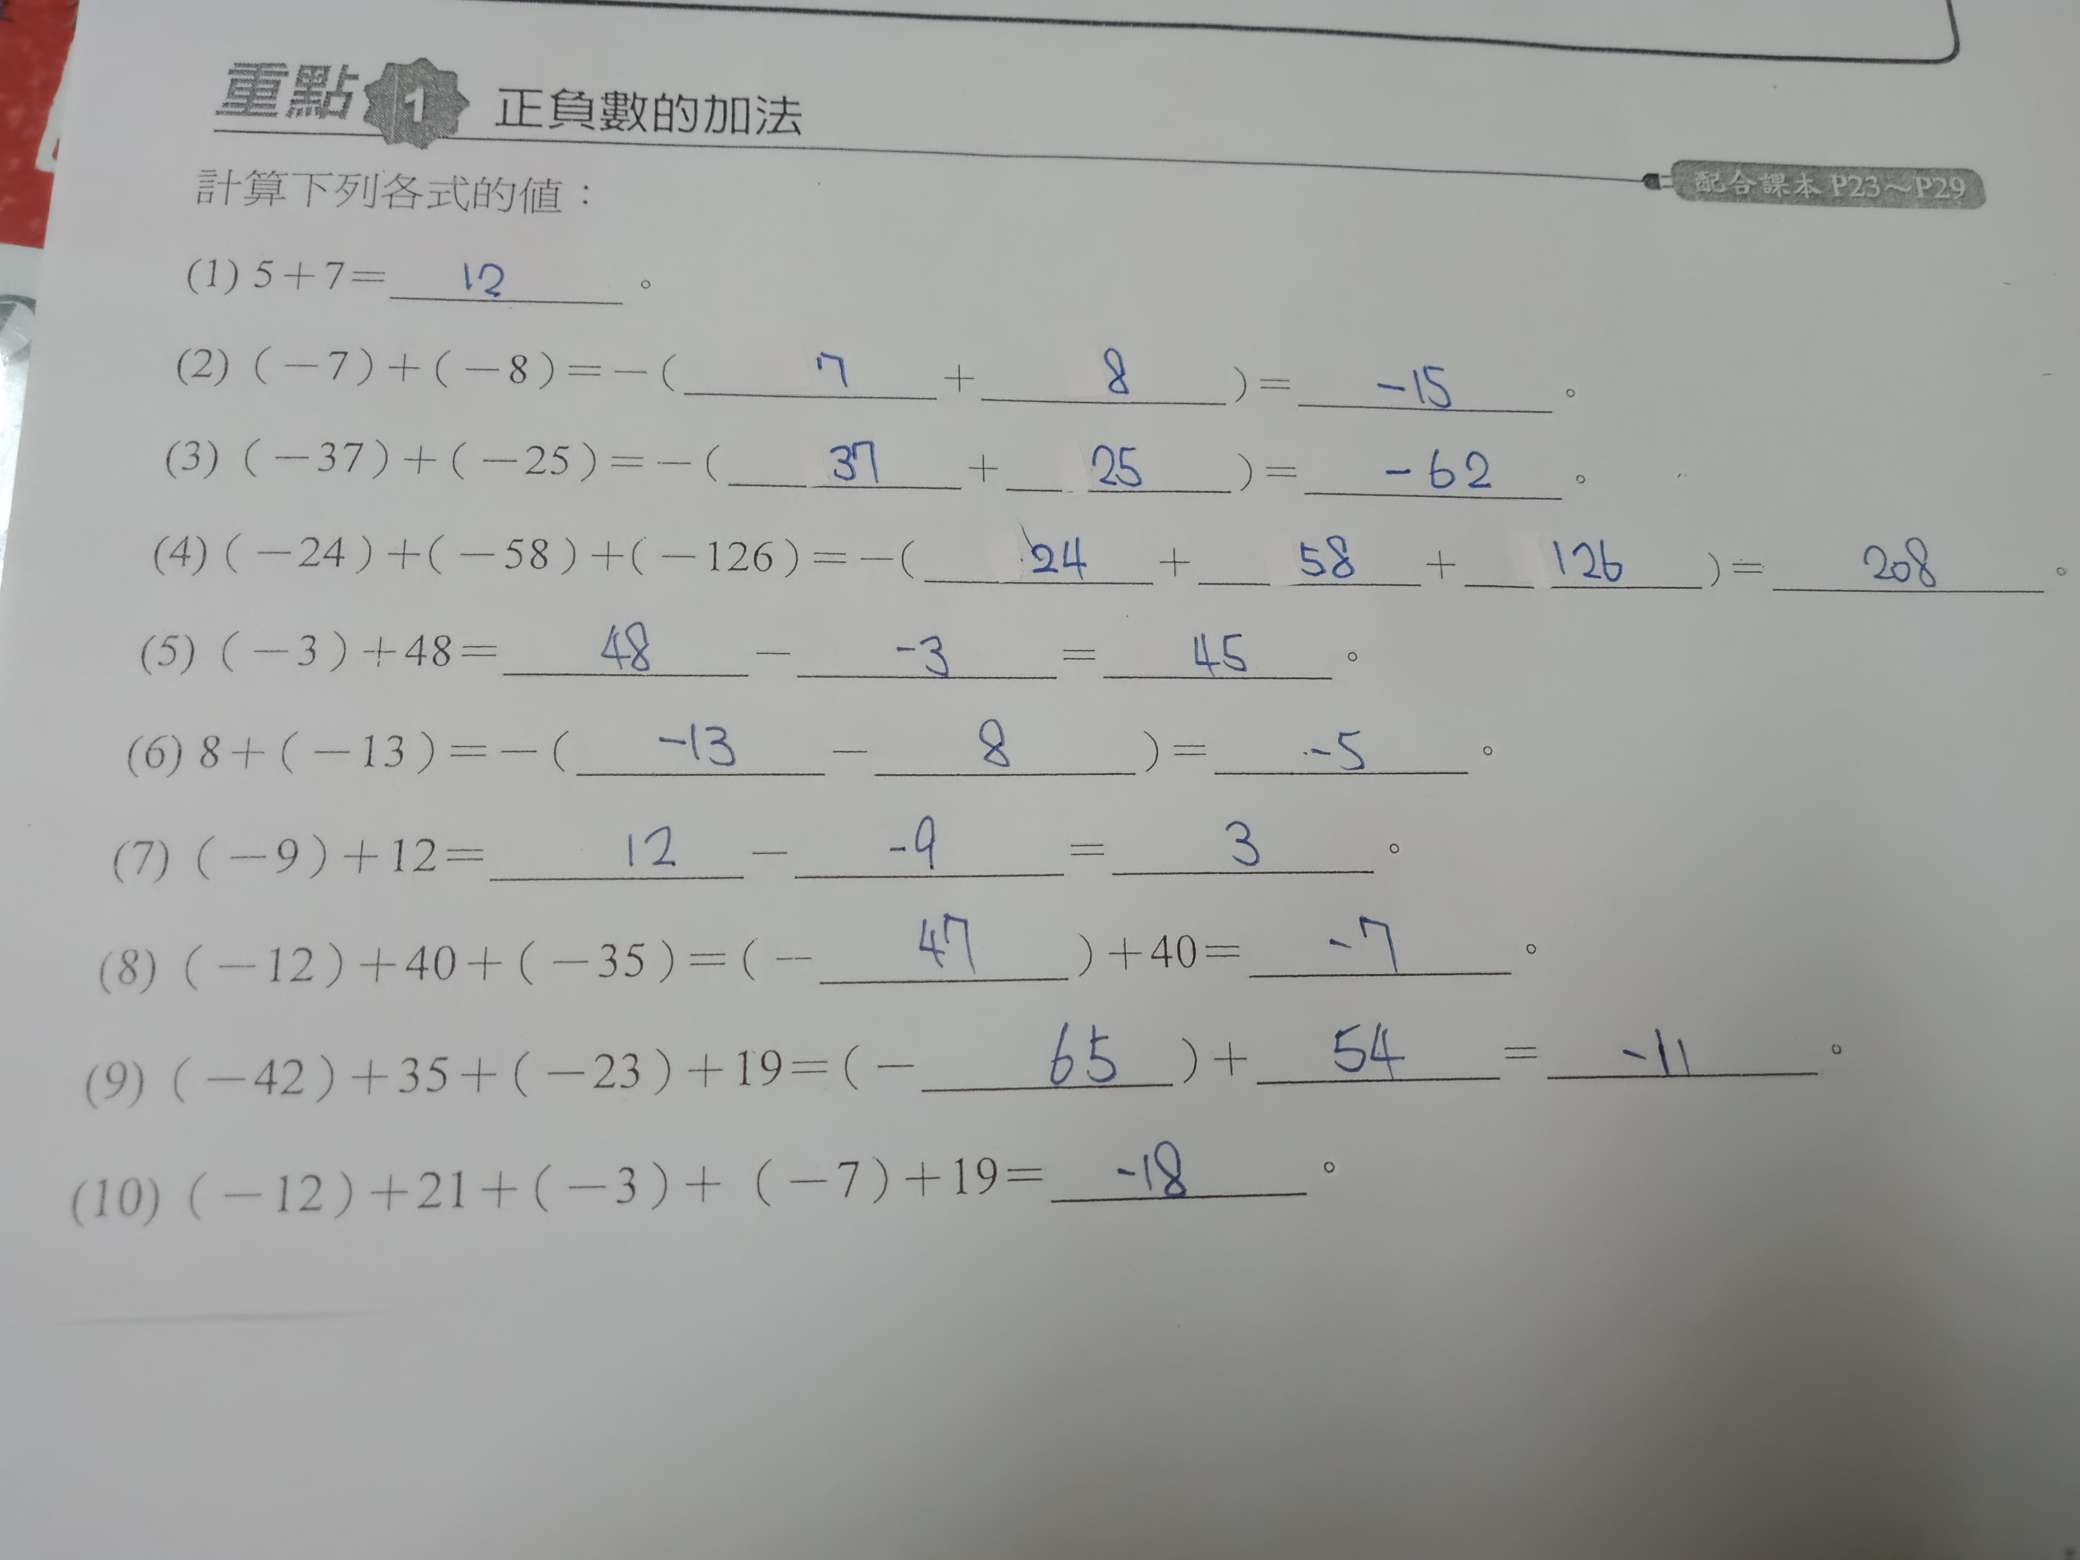 重點 1 正負數的加法
配合課本 P23～P29
計算下列各式的值：
(1) 5＋7＝ 12 。
(2) (－7)＋(－8)＝－( 7 ＋ 8 )＝ -15 。
(3) (－37)＋(－25)＝－( 37 ＋ 25 )＝ -62 。
(4) (－24)＋(－58)＋(－126)＝－( 24 ＋ 58 ＋ 126 )＝ 208 。
(5) (－3)＋48＝ 48 － -3 ＝ 45 。
(6) 8＋(－13)＝－( -13 － 8 )＝ -5 。
(7) (－9)＋12＝ 12 － -9 ＝ 3 。
(8) (－12)＋40＋(－35)＝(－ 47 )＋40＝ -7 。
(9) (－42)＋35＋(－23)＋19＝(－ 65 )＋ 54 ＝ -11 。
(10) (－12)＋21＋(－3)＋(－7)＋19＝ -18 。